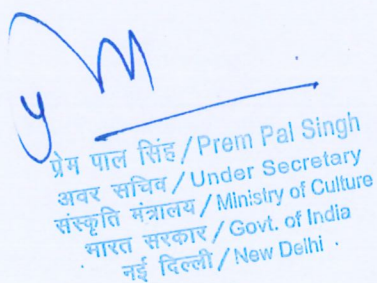 प्रेम पाल सिंह / Prem Pal Singh
अवर सचिव / Under Secretary
संस्कृति मंत्रालय / Ministry of Culture
भारत सरकार / Govt. of India
नई दिल्ली / New Delhi